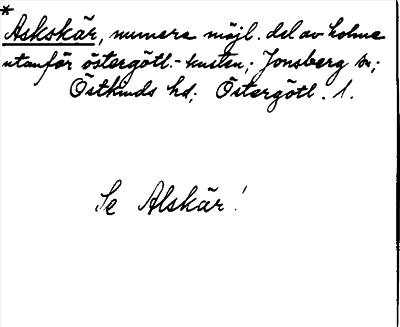 *
Askskär, numera möjl. del av holme
utanför östergötl.-kusten; Jonsberg sn;
Östkinds hd; Östergötl. l.
Se Alskär!